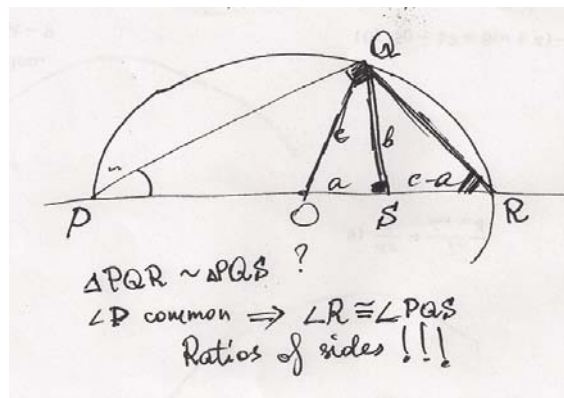 Q
c b
a c-a
P O S R
ΔPQR ~ ΔPQS ?
∠P common ⇒ ∠R ≅ ∠PQS
Ratios of sides !!!